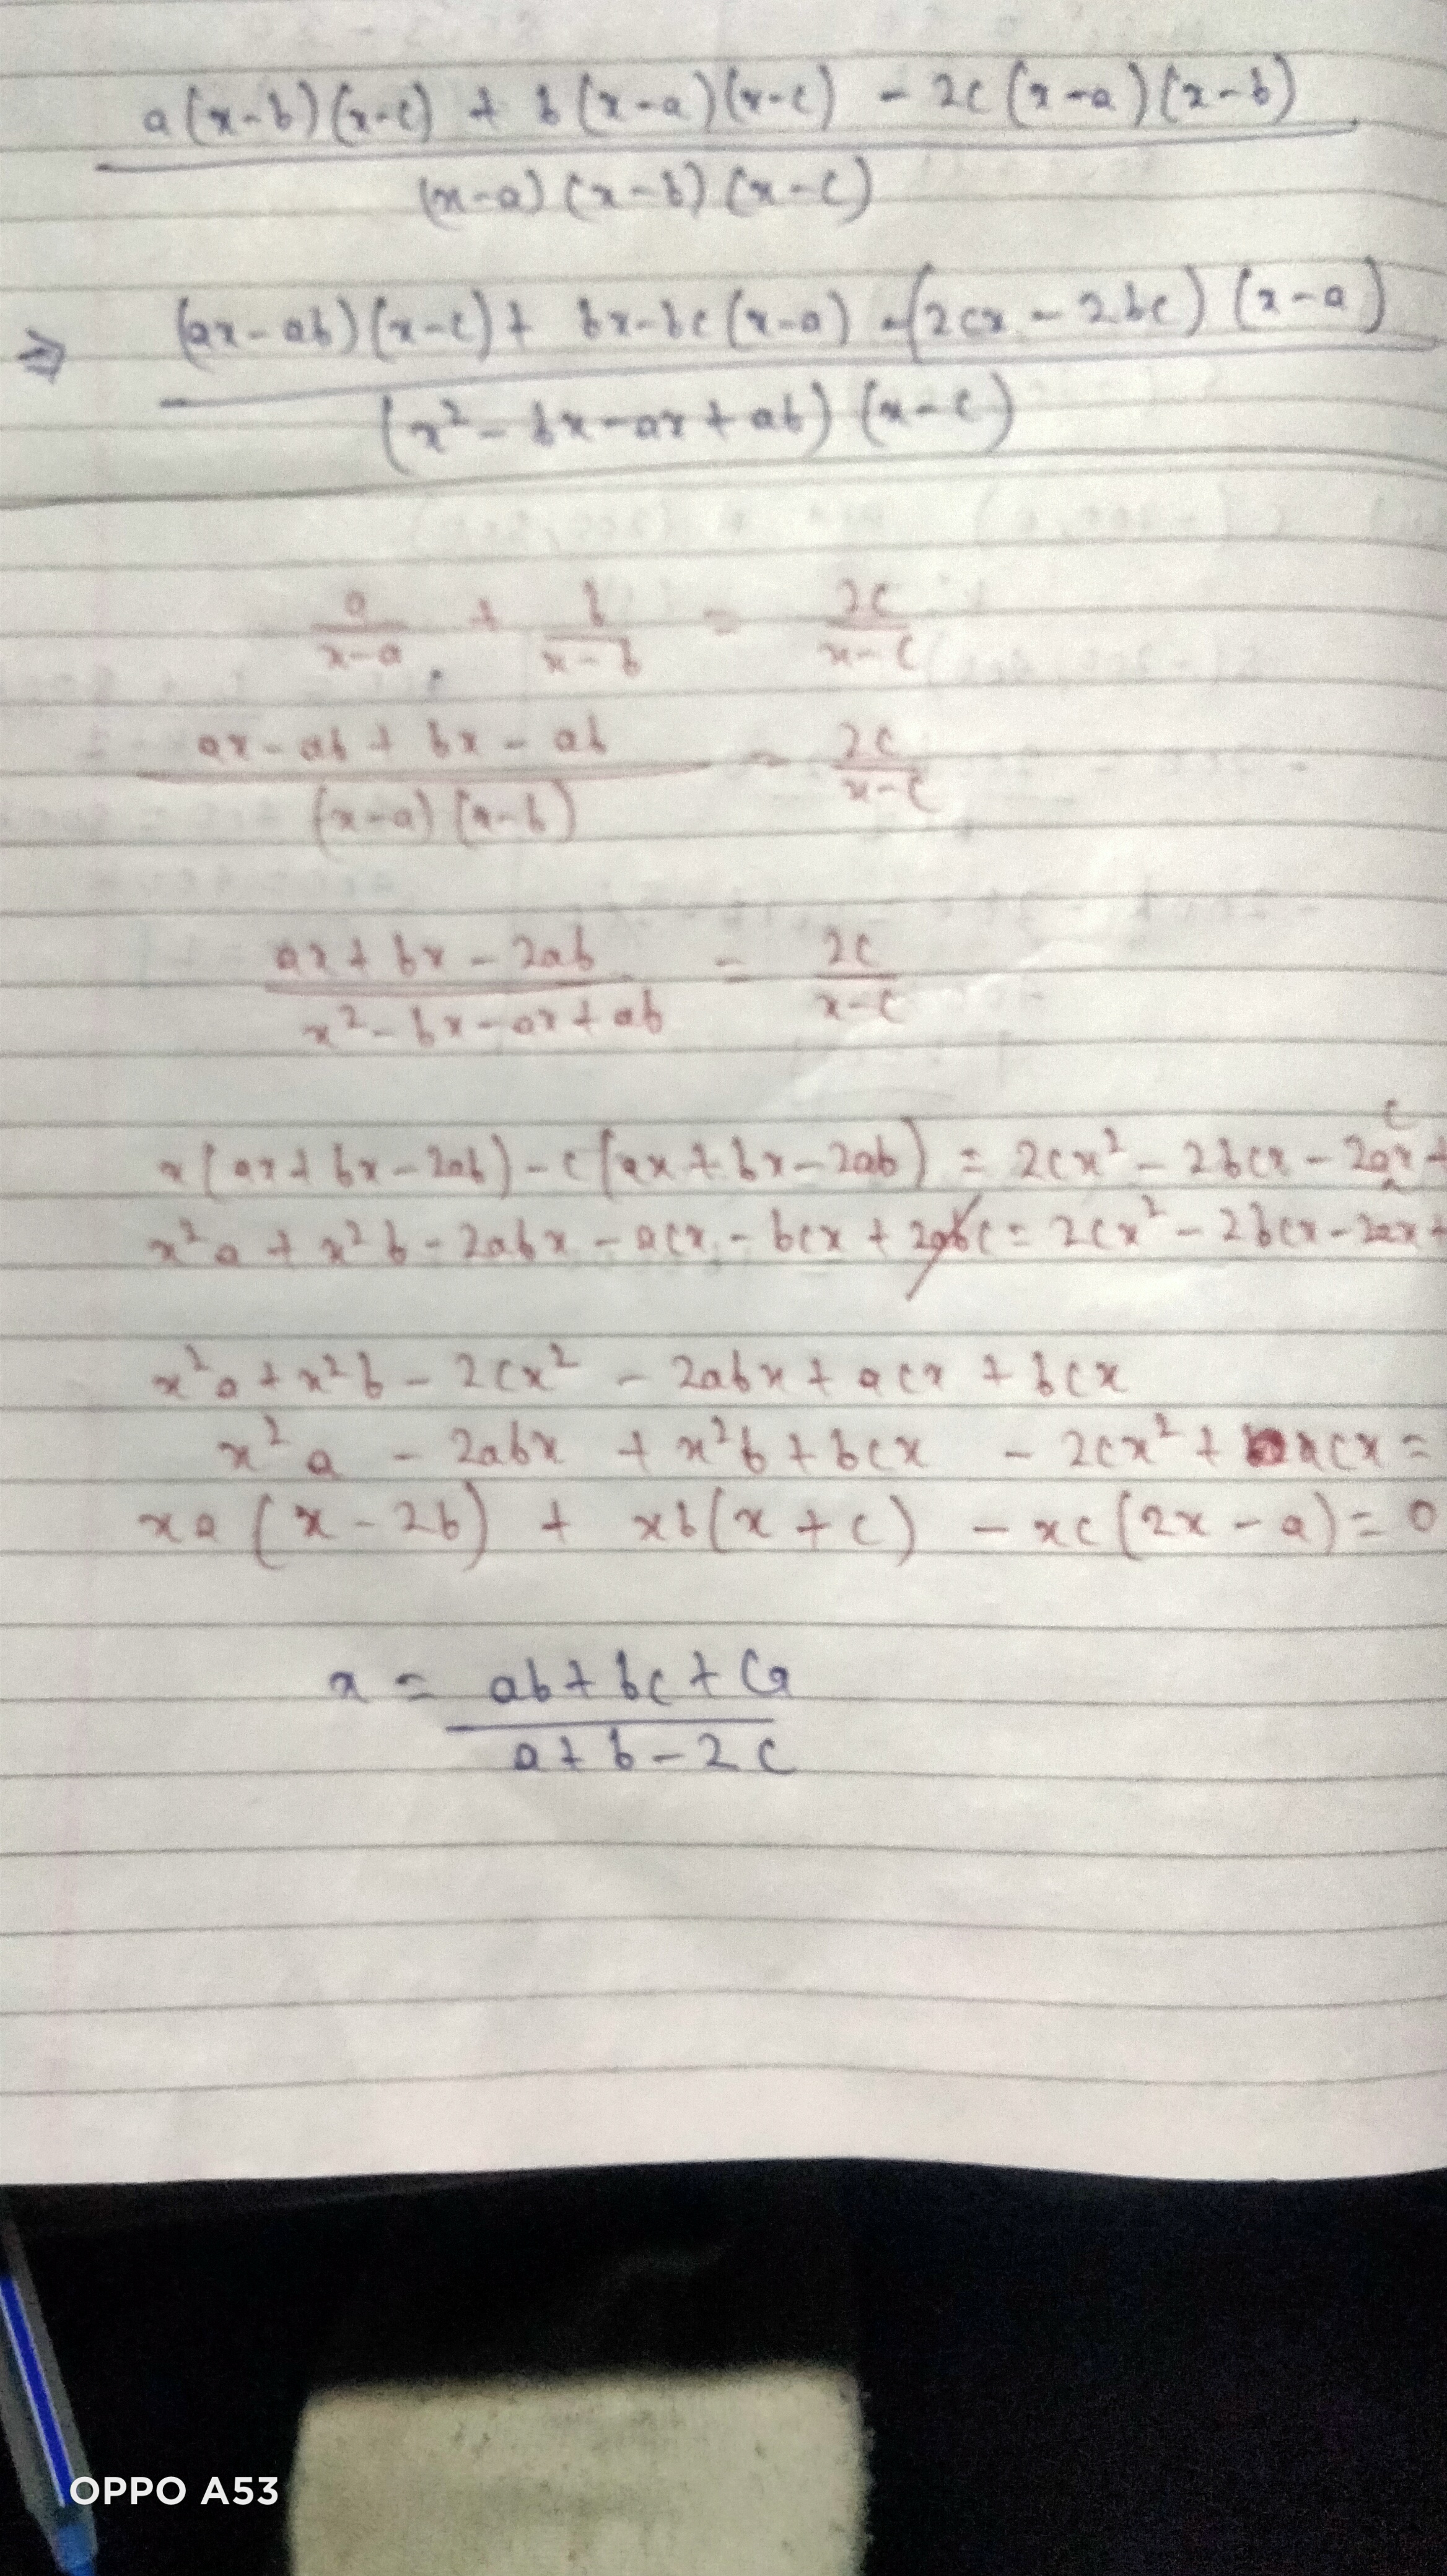 a(x-b)(x-c) + b(x-a)(x-c) - 2c(x-a)(x-b)
(x-a)(x-b)(x-c)
⇒ (ax-ab)(x-c)+ bx-bc(x-a) -(2cx-2bc)(x-a)
(x²-bx-ax+ab)(x-c)
a/x-a + b/x-b = 2c/x-c
ax-ab+bx-ab/(x-a)(x-b) = 2c/x-c
ax+bx-2ab/x²-bx-ax+ab = 2c/x-c
c
x(ax+bx-2ab)-c(ax+bx-2ab) = 2cx²-2bcx-2ax+
x²a+x²b-2abx-acx-bcx+2abc=2cx²-2bcx-2ax+
x²a+x²b-2cx²-2abx+acx+bcx
x²a-2abx+x²b+bcx-2cx²+xcx=
xa(x-2b)+xb(x+c)-xc(2x-a)=0
x = ab+bc+ca
a+b-2c
OPPO A53